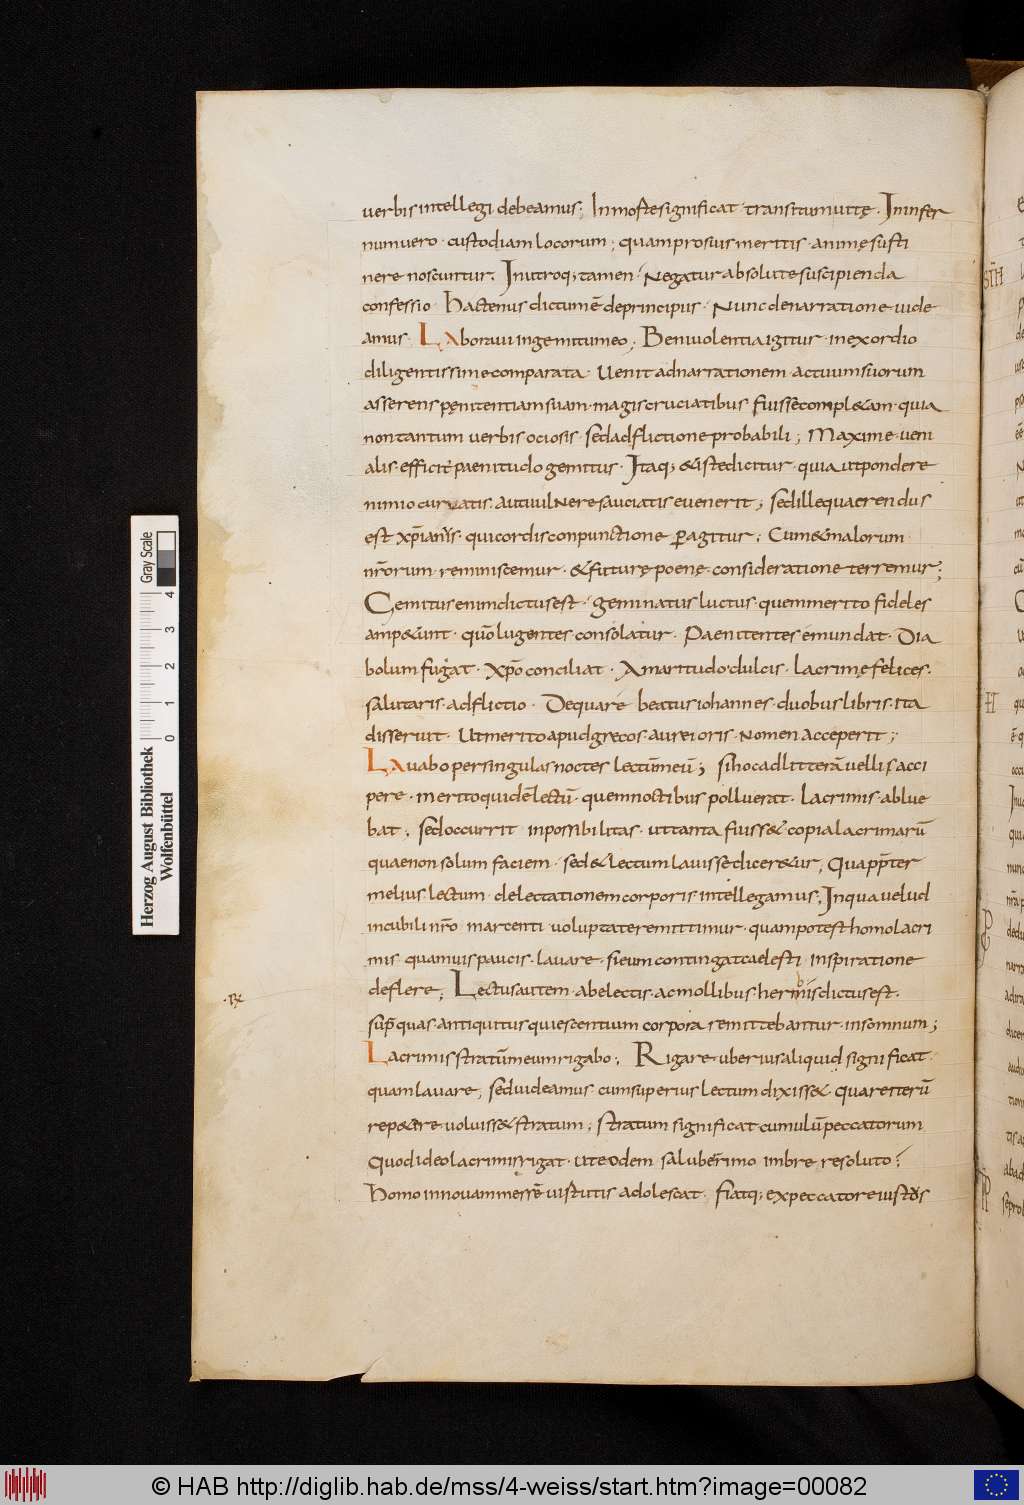 uerbis intellegi debeamus; In morte significat transitum uitę. In infer
num uero. custodiam locorum; quam prosuis meritis. animę susti
nere noscuntur. In utroq; tamen. Negatur absolute suscipienda
confessio. hactenus dictum ē de principiis. Nunc de narratione uide
amus. Laboraui in gemitu meo; Beniuolentia igitur. in exordio
diligentissime comparata. Uenit ad narrationem. actuum suorum
asserens pęnitentiam suam. magis cruciatibus fuisse compl&am. quia
non tantum uerbis ociosis. sed adflictione probabili; Maxime. ueni
alis. efficit paenitudo gemitus. Itaq; & iste dicitur. quia ut pondere
nimio curuatis. aut uulnere sauciatis euenerit; sed ille quaerendus
est xp̄ianis. qui cordis conpunctione peragitur; Cum & malorum
nr̄orum reminiscemur. & futurę poenę. consideratione terremur;
Gemitus enim dictus est. geminatus luctus. quem merito fideles
amp&unt. quō lugentes consolatur. Paenitentes emundat. Dia
bolum fugat. xp̄o conciliat. Amaritudo dulcis. lacrimę felices.
salutaris. adflictio. De qua re beatus iohannes. duobus libris. ita
disseruit. Ut merito apud grecos. aurei oris. nomen acceperit;
Lauabo per singulas noctes lectū meū; si hoc ad litterā uellis acci
pere. merito quidē lectū. quem noctibus polluerat. lacrimis. ablue
bat; sed occurrit inpossibilitas. ut tanta fuiss& copia lacrimarū
quae non solum faciem. sed & lectum lauisse dicer&ur; Qua pp̄ter
melius lectum. delectationem corporis intellegamus. In qua uelud
in cubili nr̄o marcenti uoluptate remittimur. quam potest homo lacri
mis quamuis paucis. lauare. si eum contingat caelesti inspiratione
deflere; Lectus autem. ab electis. ac mollibus. herbis dictus est.
sup̄ quas. antiquitus quiescentium corpora remittebantur. in somnum;
Lacrimis stratū meum rigabo; Rigare uberius aliquid significat
quam lauare; sed uideamus. cum superius lectum dixiss&. quare iterū
rep&ere uoluiss& stratum; stratum significat cumulū peccatorum
Quod ideo lacrimis rigat. ut eodem saluberrimo imbre resoluto;
homo in nouam messē uirtutis adolescat. fiatq; ex peccatore iustus
Herzog August Bibliothek
Wolfenbüttel
0 1 2 3 4 Gray Scale
© HAB http://diglib.hab.de/mss/4-weiss/start.htm?image=00082